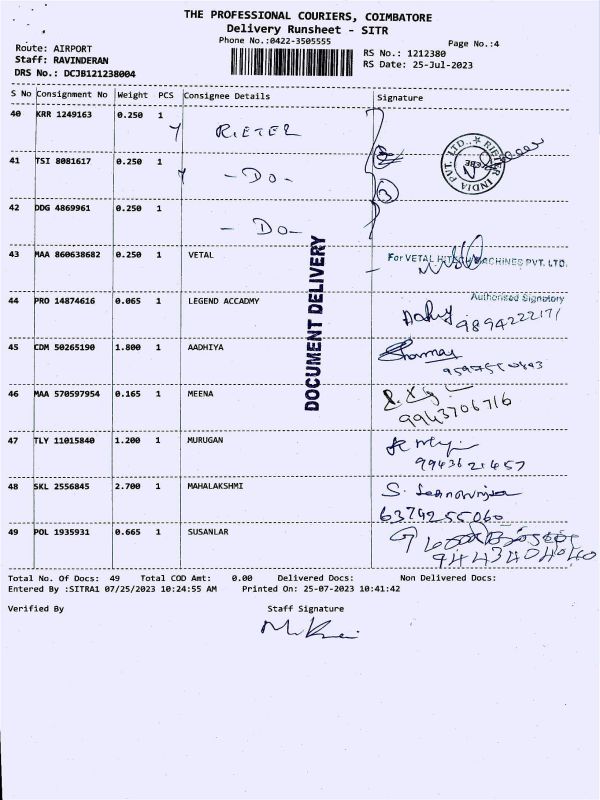 THE PROFESSIONAL COURIERS, COIMBATORE
Delivery Runsheet - SITR
Phone No.:0422-3505555
Page No.:4
Route: AIRPORT
Staff: RAVINDERAN
DRS No.: DCJB121238004
RS No.: 1212380
RS Date: 25-Jul-2023
S No Consignment No Weight PCS Consignee Details Signature
40 KRR 1249163 0.250 1 RIETER
41 TSI 8081617 0.250 1 - DO -
RIETER INDIA PVT. LTD.
3
42 DDG 4869961 0.250 1 - DO -
43 MAA 860638682 0.250 1 VETAL
For VETAL HITECH MACHINES PVT. LTD.
Authorised Signatory
44 PRO 14874616 0.065 1 LEGEND ACCADMY
9894222171
45 CDM 50265190 1.800 1 AADHIYA
46 MAA 570597954 0.165 1 MEENA
9943706716
47 TLY 11015840 1.200 1 MURUGAN
9943621457
48 SKL 2556845 2.700 1 MAHALAKSHMI
6374255060
49 POL 1935931 0.665 1 SUSANLAR
9443404040
DOCUMENT DELIVERY
Total No. Of Docs: 49 Total COD Amt: 0.00 Delivered Docs: Non Delivered Docs:
Entered By :SITRA1 07/25/2023 10:24:55 AM Printed On: 25-07-2023 10:41:42
Verified By Staff Signature